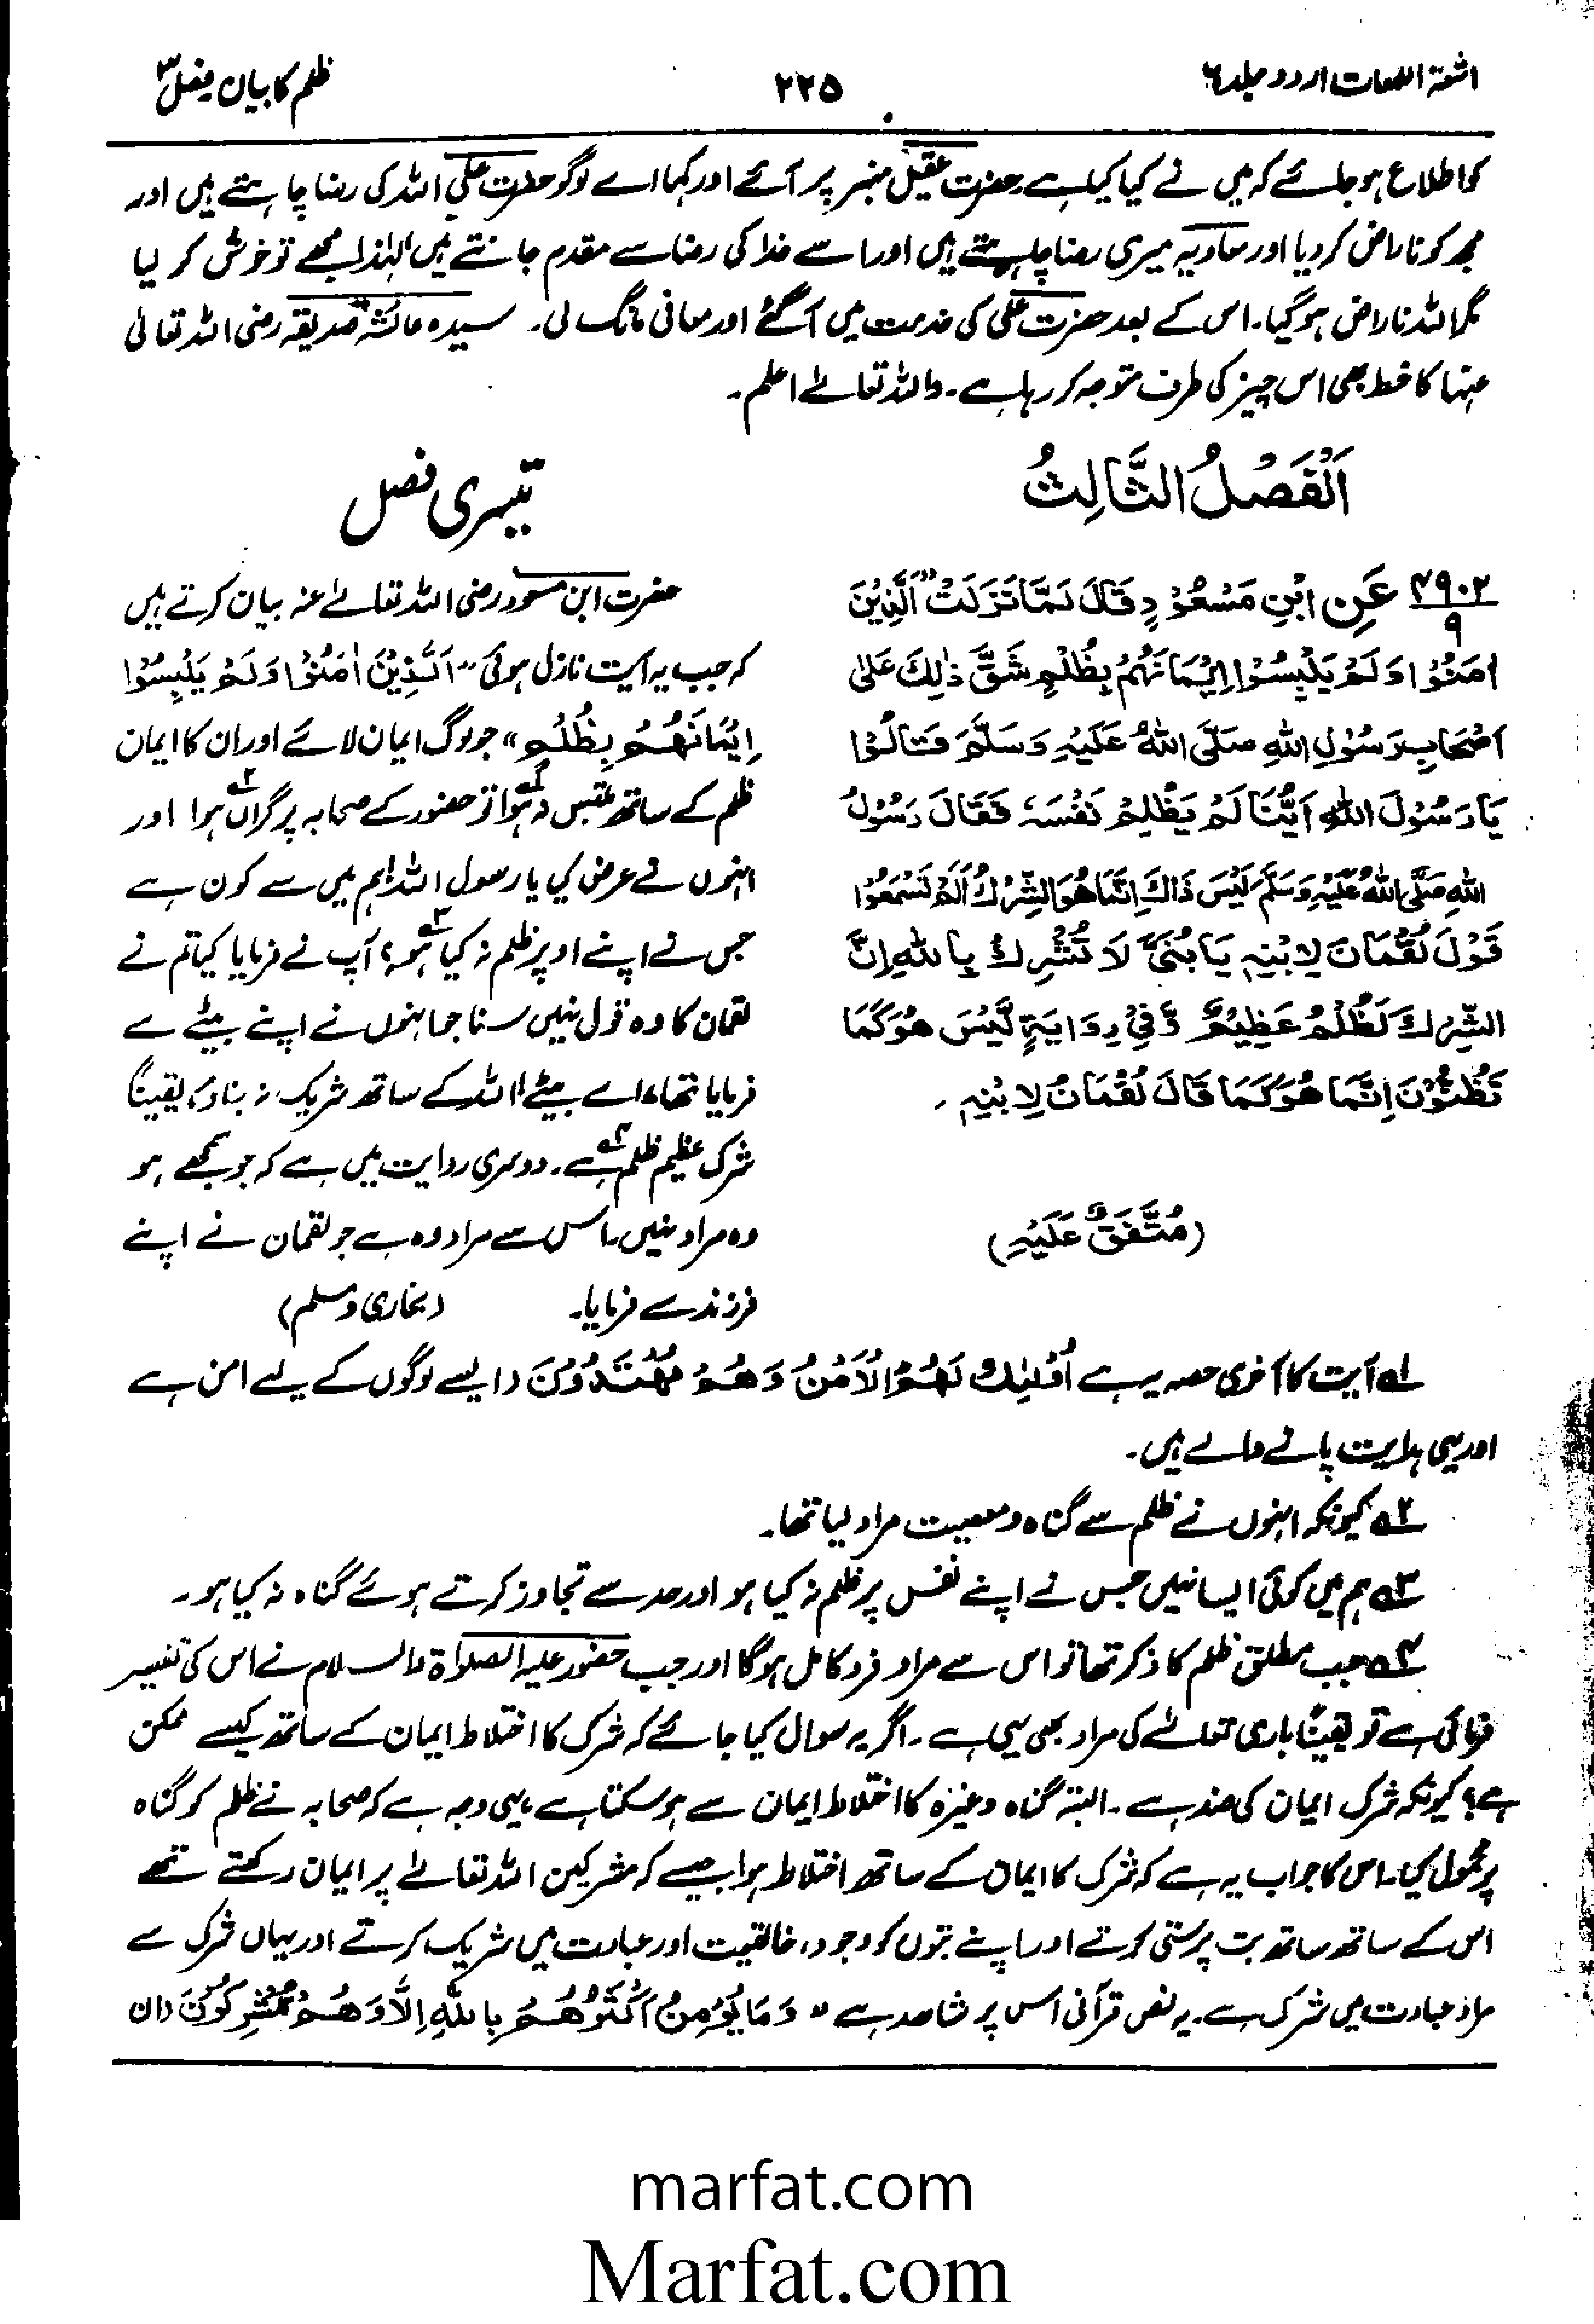 اشعۃ اللمعات اردو جلد ٦
۲۲۵
ظلم کا بیان فصل ۳
کو اطلاع ہو جائے کہ میں نے کیا کیا ہے۔ حضرت عقیل منبر پر آئے اور کہا اے لوگو حضرت علی اللہ کی رضا چاہتے ہیں اور
مجھ کو ناراض کر دیا اور معاویہ میری رضا چاہتے ہیں اور اسے خدا کی رضا سے مقدم جانتے ہیں لہٰذا مجھے تو خوش کر لیا
مگر اللہ ناراض ہو گیا۔ اس کے بعد حضرت علی کی خدمت میں آ گئے اور معافی مانگ لی۔ سیدہ عائشہ صدیقہ رضی اللہ تعالیٰ
عنہا کا خط بھی اس چیز کی طرف متوجہ کر رہا ہے۔ واللہ تعالےٰ اعلم۔
اَلْفَصْلُ الثَّالِثُ
۴۹۰۲
۹
عَنِ ابْنِ مَسْعُوْدٍ قَالَ لَمَّا نَزَلَتْ "اَلَّذِيْنَ
اٰمَنُوْا وَلَمْ يَلْبِسُوْا اِيْمَانَهُمْ بِظُلْمٍ شَقَّ ذٰلِكَ عَلٰى
اَصْحَابِ رَسُوْلِ اللّٰهِ صَلَّى اللّٰهُ عَلَيْهِ وَسَلَّمَ وَقَالُوْا
يَا رَسُوْلَ اللّٰهِ اَيُّنَا لَمْ يَظْلِمْ نَفْسَهٗ فَقَالَ رَسُوْلُ
اللّٰهِ صَلَّى اللّٰهُ عَلَيْهِ وَسَلَّمَ لَيْسَ ذَاكَ اِنَّمَا هُوَ الشِّرْكُ اَلَمْ تَسْمَعُوْا
قَوْلَ لُقْمَانَ لِابْنِهٖ يَا بُنَيَّ لَا تُشْرِكْ بِاللّٰهِ اِنَّ
الشِّرْكَ لَظُلْمٌ عَظِيْمٌ وَّفِيْ رِوَايَةٍ لَّيْسَ هُوَ كَمَا
تَظُنُّوْنَ اِنَّمَا هُوَ كَمَا قَالَ لُقْمَانُ لِابْنِهٖ ۔
(مُتَّفَقٌ عَلَيْهِ)
تیسری فصل
حضرت ابن مسعود رضی اللہ تعالےٰ عنہ بیان کرتے ہیں
کہ جب یہ آیت نازل ہوئی "اَلَّذِيْنَ اٰمَنُوْا وَلَمْ يَلْبِسُوْا
اِيْمَانَهُمْ بِظُلْمٍ" جو لوگ ایمان لائے اور ان کا ایمان
ظلم کے ساتھ ملتبس نہ ہوا۱؎ تو حضور کے صحابہ پر گراں۲؎ ہوا اور
انہوں نے عرض کی یا رسول اللہ! ہم میں سے کون ہے
جس نے اپنے اوپر ظلم نہ کیا۳؎ ہو؟ آپ نے فرمایا کیا تم نے
لقمان کا وہ قول نہیں سنا جو انہوں نے اپنے بیٹے سے
فرمایا تھا، اے بیٹے! اللہ کے ساتھ شریک نہ بناؤ، یقیناً
شرک عظیم ظلم۴؎ ہے۔ دوسری روایت میں ہے کہ جو سمجھے ہو
وہ مراد نہیں۔ اس سے مراد وہ ہے جو لقمان نے اپنے
فرزند سے فرمایا۔ (بخاری و مسلم)
۱؎ آیت کا آخری حصہ یہ ہے اُولٰٓئِكَ لَهُمُ الْاَمْنُ وَهُمْ مُّهْتَدُوْنَ (ایسے لوگوں کے لیے امن ہے
اور یہی ہدایت پانے والے ہیں۔
۲؎ کیونکہ انہوں نے ظلم سے گناہ و معصیت مراد لیا تھا۔
۳؎ ہم میں کوئی ایسا نہیں جس نے اپنے نفس پر ظلم نہ کیا ہو اور حد سے تجاوز کرتے ہوئے گناہ نہ کیا ہو۔
۴؎ جب مطلق ظلم کا ذکر تھا تو اس سے مراد فرد کامل ہوگا اور جب حضور علیہ الصلوٰۃ والسلام نے اس کی تفسیر
فرمائی ہے تو یقیناً باری تعالےٰ کی مراد بھی یہی ہے۔ اگر یہ سوال کیا جائے کہ شرک کا اختلاط ایمان کے ساتھ کیسے ممکن
ہے؟ کیونکہ شرک ایمان کی ضد ہے۔ البتہ گناہ وغیرہ کا اختلاط ایمان سے ہو سکتا ہے، یہی وجہ ہے کہ صحابہ نے ظلم کو گناہ
پر محمول کیا۔ اس کا جواب یہ ہے کہ شرک کا ایمان کے ساتھ اختلاط ہوا جیسے کہ مشرکین اللہ تعالےٰ پر ایمان رکھتے تھے
اس کے ساتھ ساتھ بت پرستی کرتے اور اپنے بتوں کو وجود، خالقیت اور عبادت میں شریک کرتے اور یہاں شرک سے
مراد عبادت میں شرک ہے۔ یہ نص قرآنی اس پر شاہد ہے "وَمَا يُؤْمِنُ اَكْثَرُهُمْ بِاللّٰهِ اِلَّا وَهُمْ مُّشْرِكُوْنَ (ان
marfat.com
Marfat.com